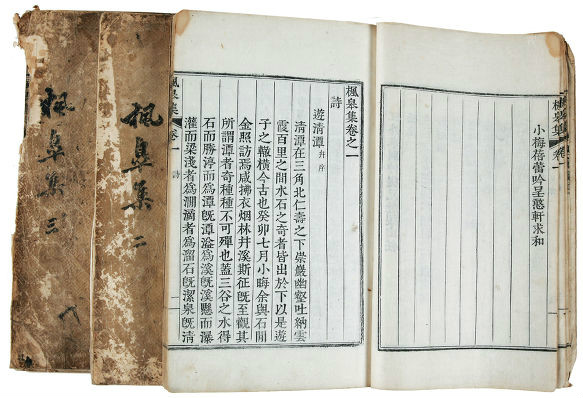 楓皋集
卷一
小梅蓓蕾吟呈憨軒求和
楓皋集卷之一
詩
遊淸潭 幷序
淸潭在三角北仁壽之下崇巖幽壑吐納雲
霞百里之間水石之奇者皆出於下以是遊
子之轍橫今古也癸卯七月小晦余與石閒
金照訪焉咸拂衣烟林幷溪斯征旣至觀其
所謂潭者奇種種不可殫也蓋三谷之水得
石而勝渟而爲潭旣潭溢爲溪旣溪懸而瀑
灌而梁淺者爲澗滴者爲溜石旣潔泉旣淸
楓皋集
卷一
詩
一
楓皋集 二
楓皋集 三